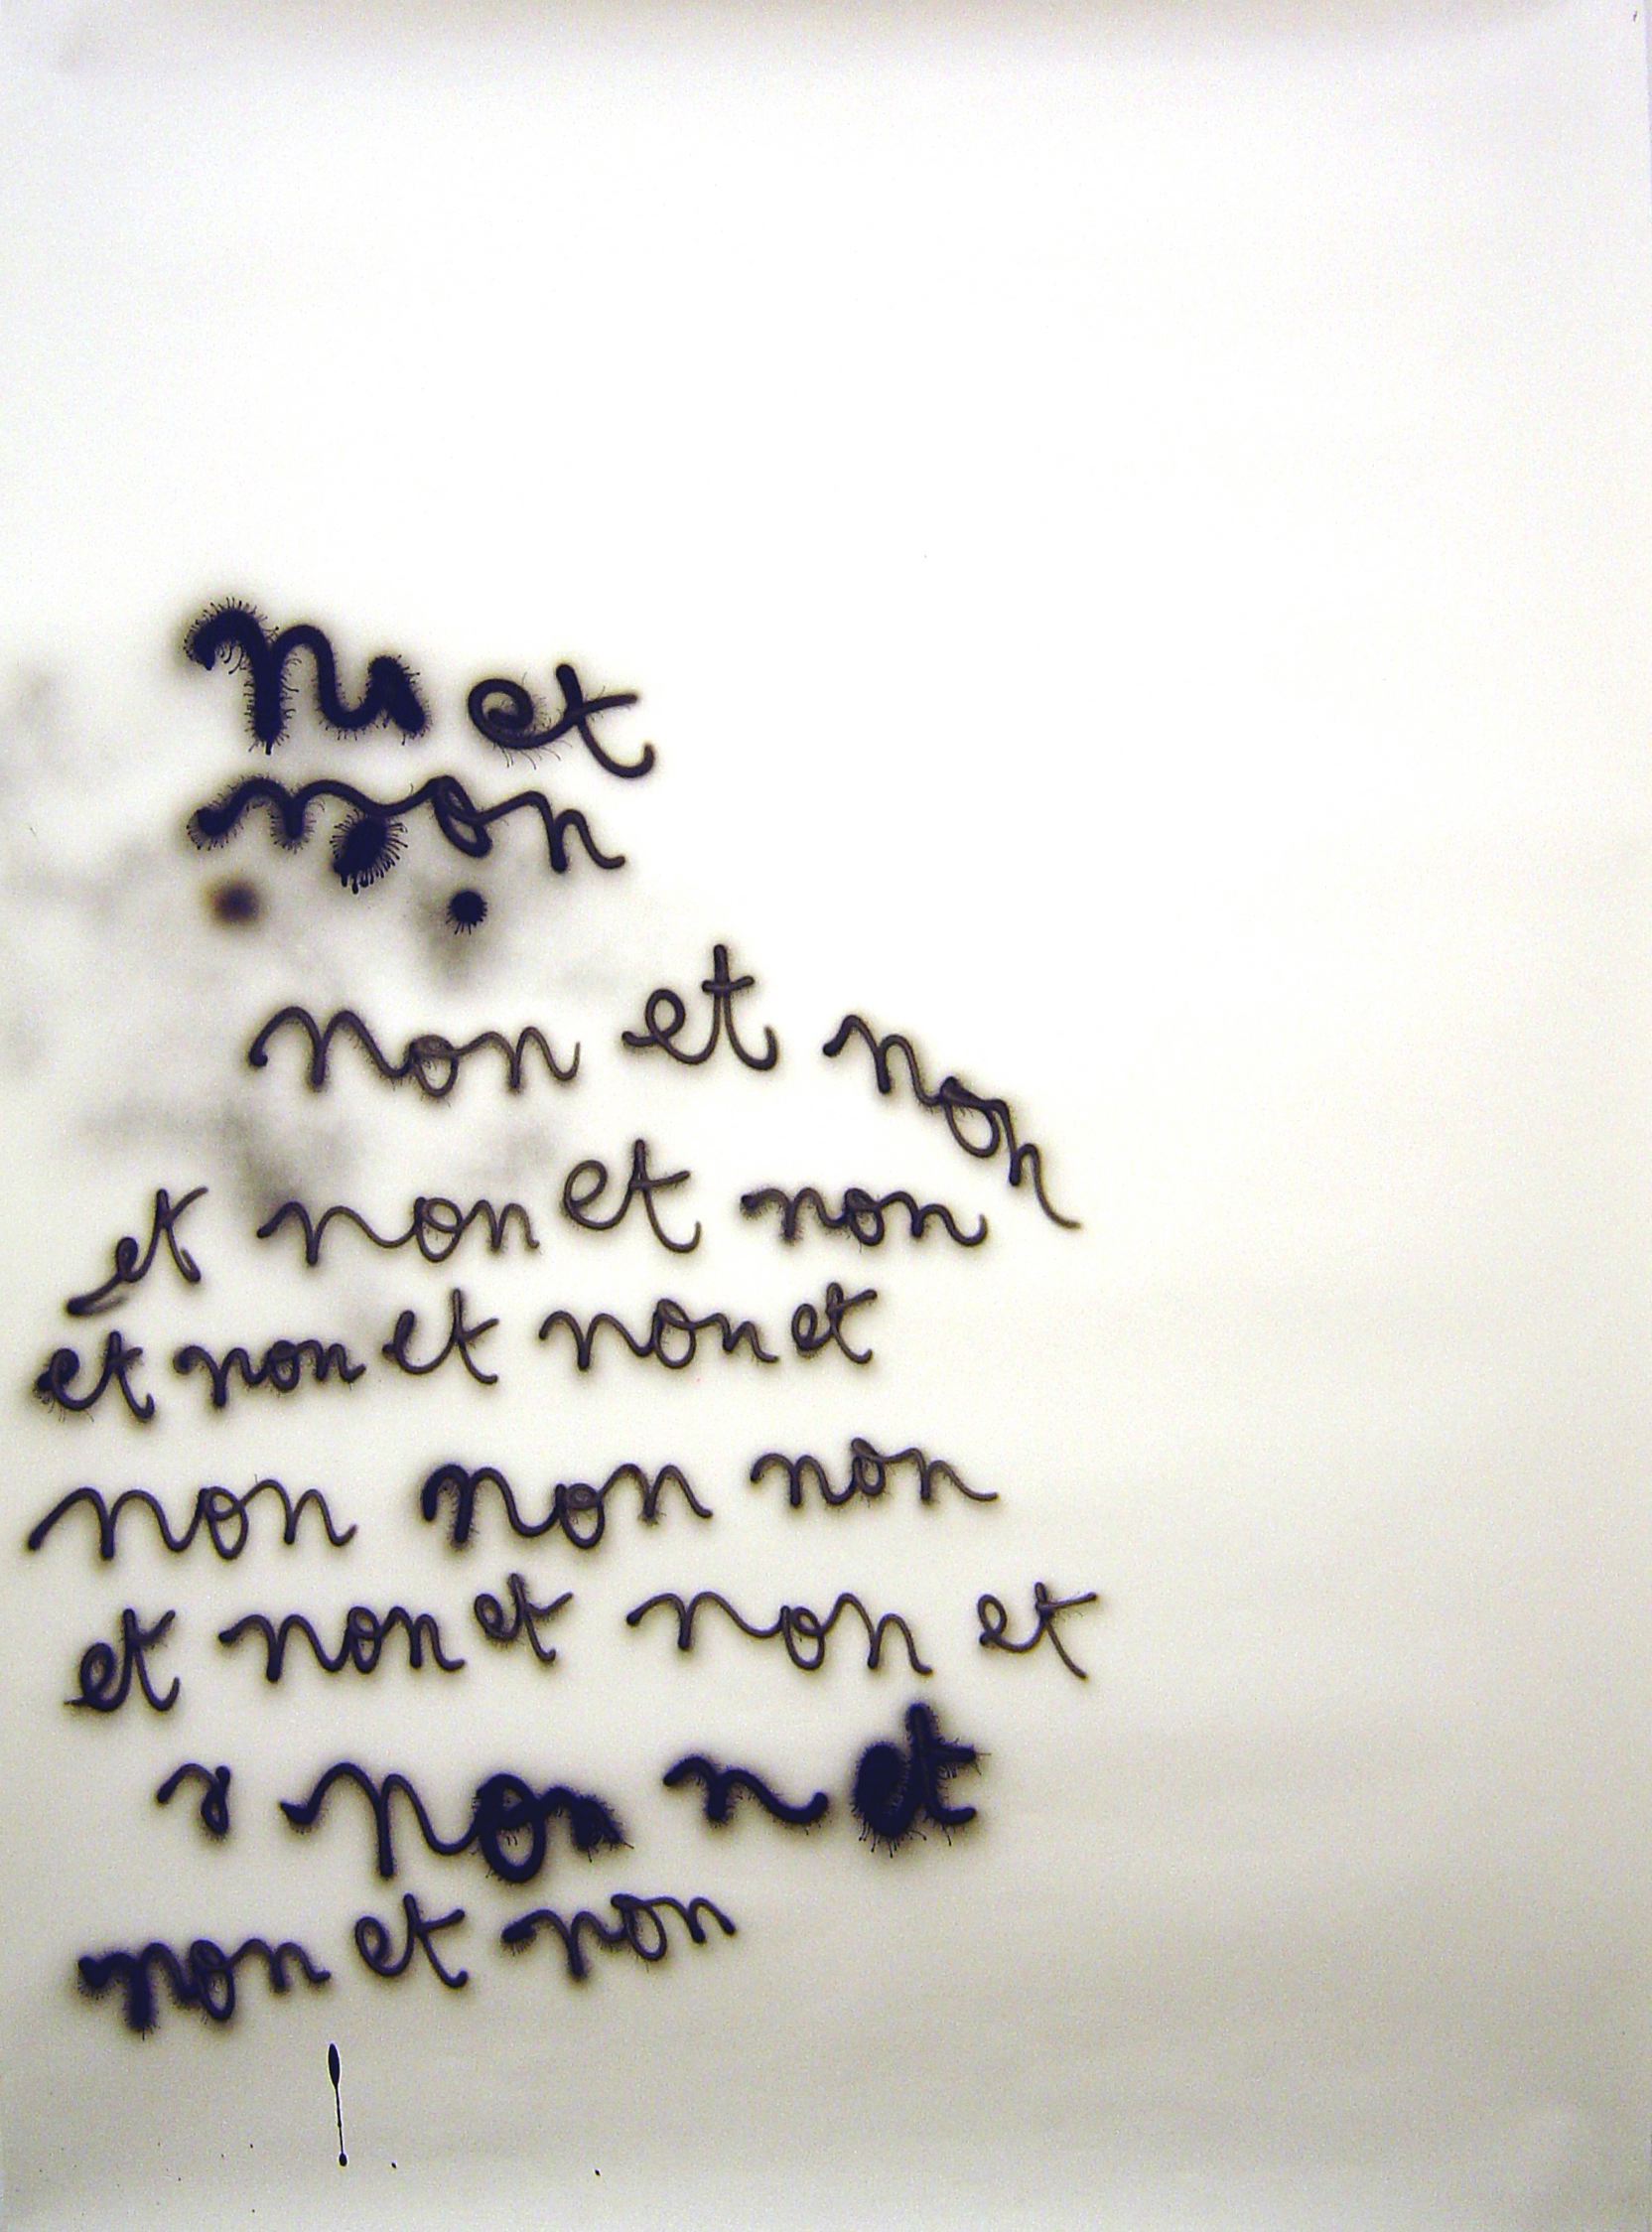 et
non
non et non
et non et non
et non et non et
non non non
et non et non et
non n et
non et non